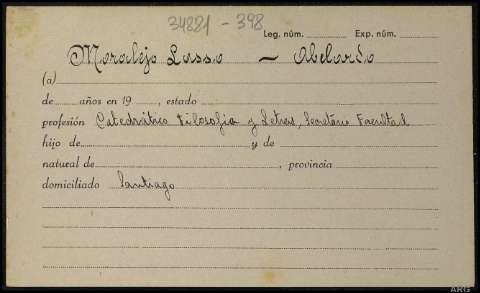 34881 - 398
Leg. núm. Exp. núm.
Moralejo Lasso — Abelardo
(a)
de años en 19 , estado
profesión Catedrático Filosofia y Letras, Secretario Facultad
hijo de y de
natural de , provincia
domiciliado Santiago
ARG